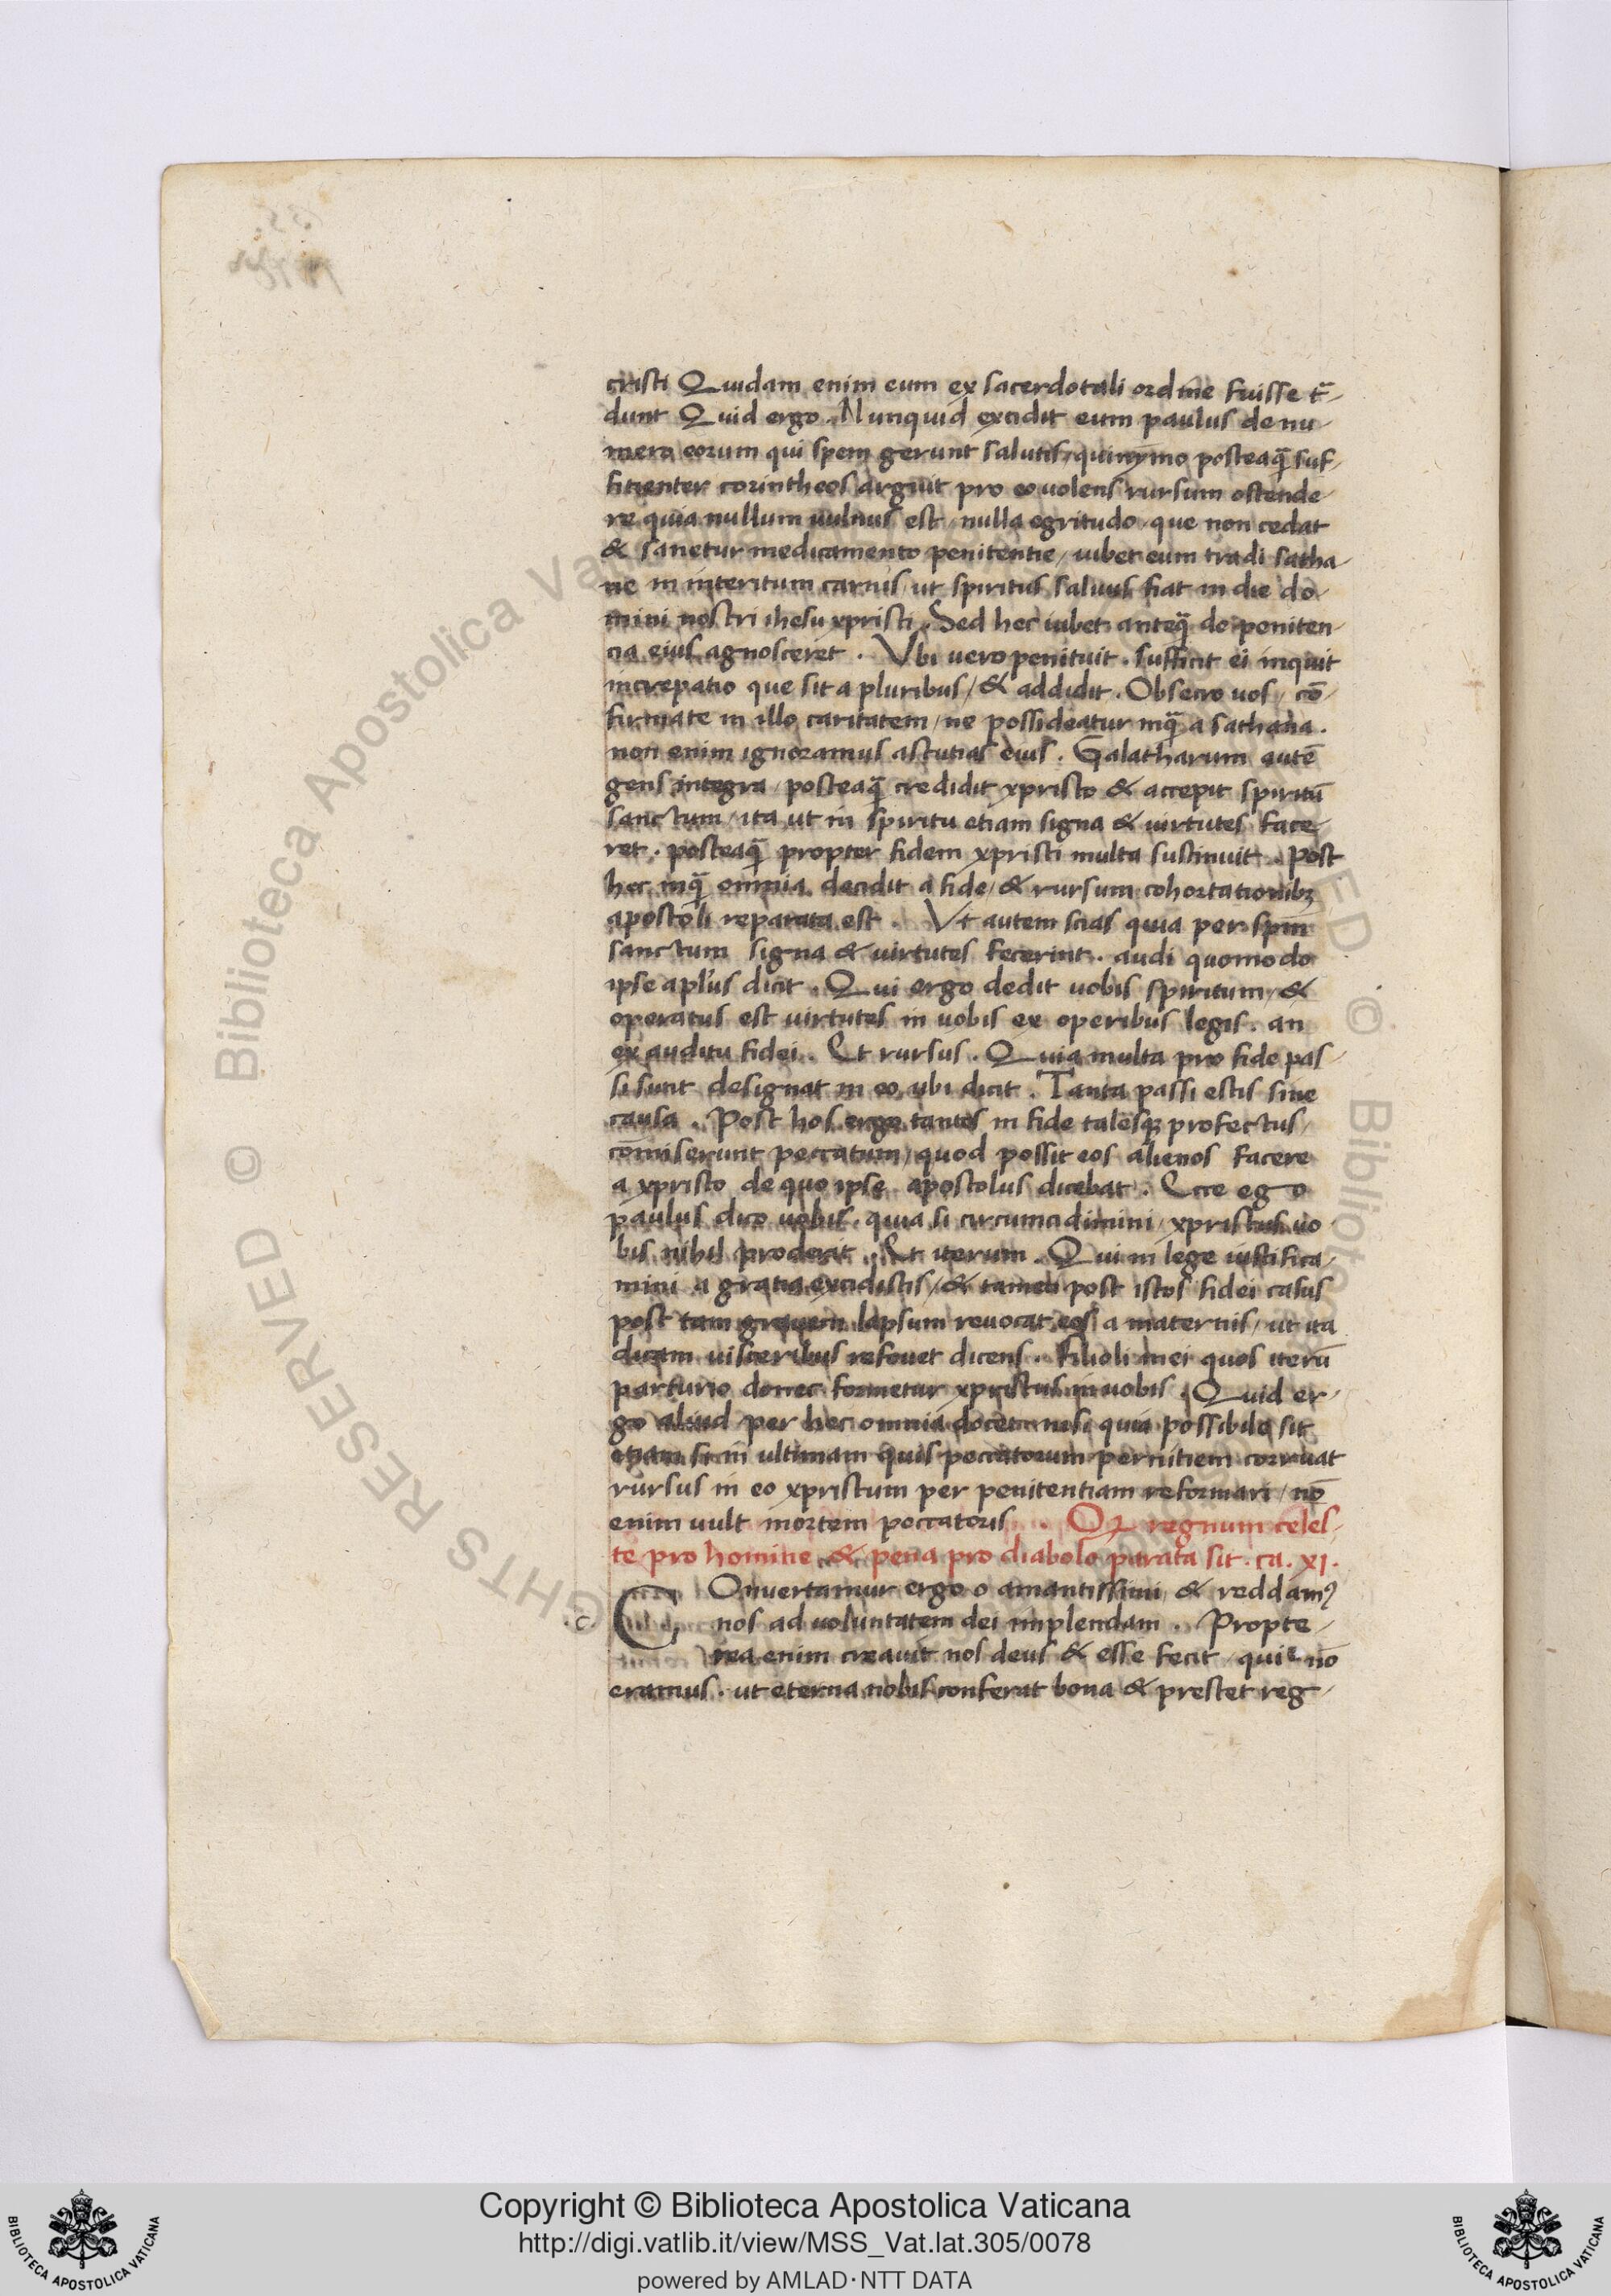 cristi Quidam enim eum ex sacerdotali ordine fuisse t̄-
dunt Quid ergo. Nunquid excidit eum paulus de nu-
mero eorum qui spem gerunt salutis, quinymo posteaq̄ suf-
fitienter corintheos arguit pro eo uolens rursum ostende-
re quia nullum uulnus est, nulla egritudo, que non cedat
& sanetur medicamento penitentie, iubet eum tradi satha-
ne in interitum carnis, ut spiritus saluus fiat in die do-
mini nostri ihesu xpristi. Sed hec iubet anteq̄ de peniten-
cia eius agnosceret. Vbi uero penituit. sufficit ei inquit
increpatio que sit a pluribus, & addidit. Obsecro uos, cō-
firmate in illo caritatem, ne possideatur inq̄ a sathana.
non enim ignoramus astutias eius. Galatharum autē
gens integra, posteaq̄ credidit xpristo & accepit spiritū
sanctum, ita ut in spiritu etiam signa & uirtutes face-
ret. posteaq̄ propter fidem xpristi multa sustinuit. Post
hec inq̄ omnia decidit a fide, & rursum cohortationibꝫ
apostoli reparata est. Vt autem scias quia per spm̄
sanctum signa & uirtutes fecerint. audi quomodo
ipse aplus dicit. Qui ergo dedit uobis spiritum, &
operatus est uirtutes in uobis ex operibus legis. an
ex auditu fidei. Et rursus. Quia multa pro fide pas-
si sunt designat in eo ubi dicit. Tanta passi estis sine
causa. Post hos ergo tantos in fide talesqꝫ profectus,
cōmiserunt peccatum, quod possit eos alienos facere
a xpristo de quo ipse apostolus dicebat. Ecce ego
paulus dico uobis, quia si circumcidimini, xpristus uo-
bis nihil proderit. Et iterum. Qui in lege iustifica-
mini a gratia excidistis, & tamen post istos fidei casus
post tam grauem lapsum reuocat eos a maternis, ut ita
dicam uisceribus refouet dicens. Filioli mei quos iterū
parturio donec formetur xpristus in uobis. Quid er-
go aliud per hec omnia docetur nisi quia possibile sit
etiam si in ultimam quis peccatorum pernitiem corruat
rursus in eo xpristum per penitentiam reformari, nō
enim uult mortem peccatoris. Qꝫ regnum celes-
te pro homine & pena pro diabolo parata sit. ca. xi.
.c. COnuertamur ergo o amantissimi & reddamꝰ
nos ad uoluntatem dei implendam. Propte-
rea enim creauit nos deus & esse fecit, qui nō
eramus. ut eterna nobis conferat bona & prestet reg-
© Biblioteca Apostolica Vaticana
GHTS RESERVED
ED . © Bibliote
Copyright © Biblioteca Apostolica Vaticana
http://digi.vatlib.it/view/MSS_Vat.lat.305/0078
powered by AMLAD·NTT DATA
BIBLIOTECA APOSTOLICA VATICANA
BIBLIOTECA APOSTOLICA VATICANA